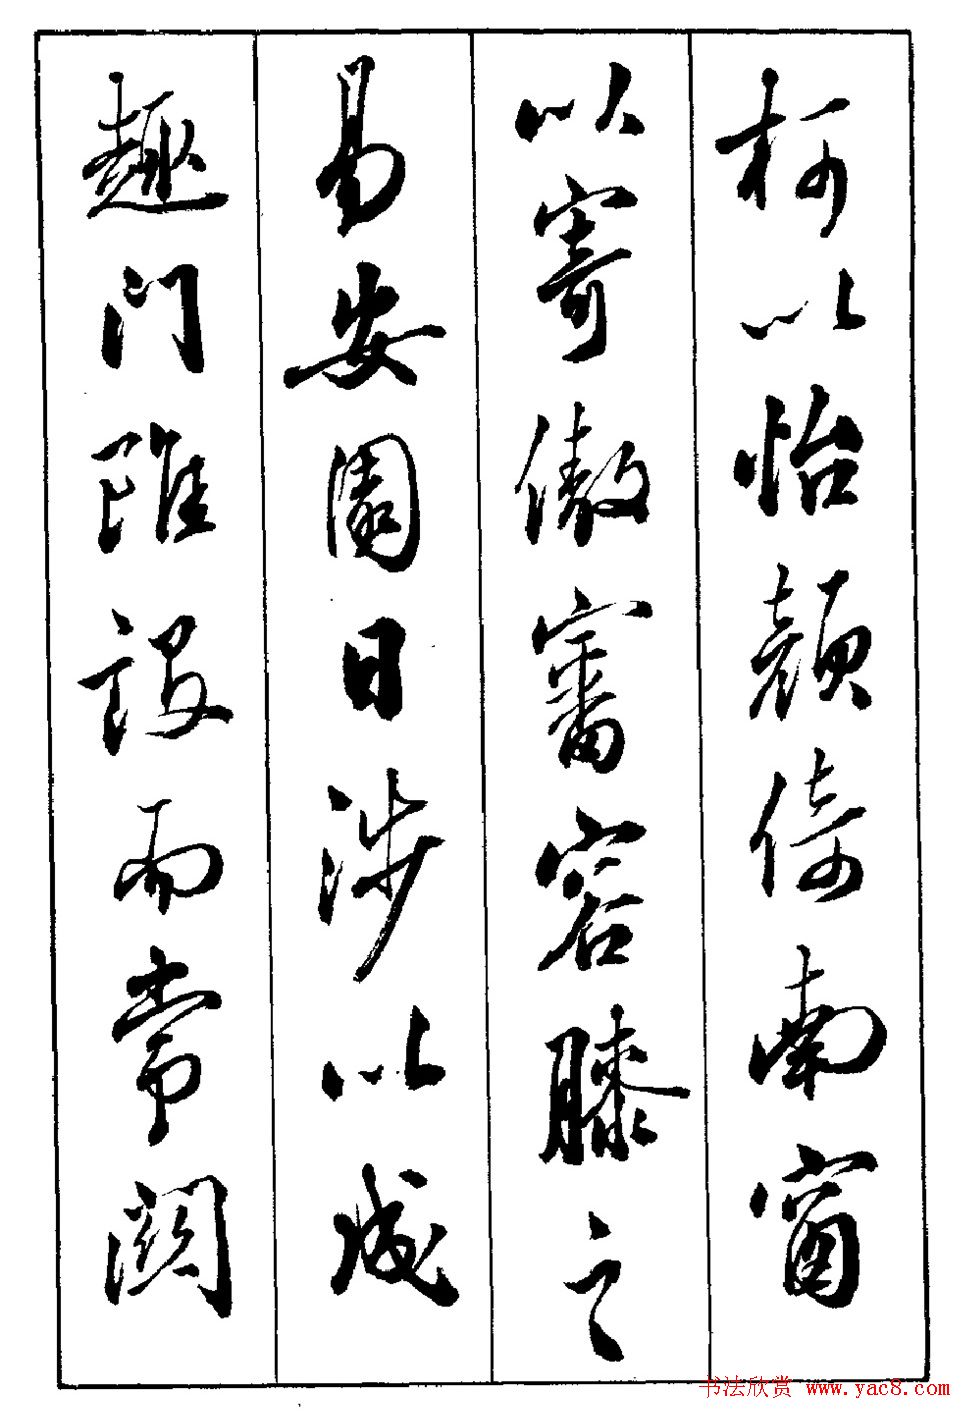 柯以怡顏倚南窗
以寄傲審容膝之
易安園日涉以成
趣門雖設而常關
书法欣赏 www.yac8.com